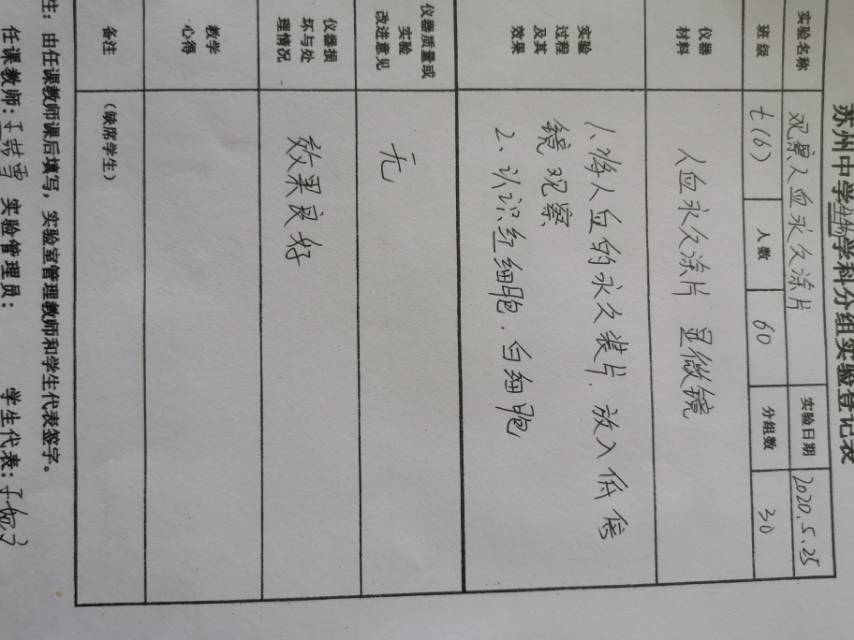 苏州中学生物学科分组实验登记表
实验名称 观察人血永久涂片 实验日期 2020.5.25
班级 七(6) 人数 60 分组数 30
仪器
材料
人血永久涂片 显微镜
实验
过程
及其
效果
1、将人血的永久装片.放入低倍
镜观察
2、认识红细胞.白细胞
仪器质量或
实验
改进意见
无
仪器损
坏与处
理情况
效果良好
教学
心得
备注
(缺席学生)
注:由任课教师课后填写,实验室管理教师和学生代表签字。
任课教师: 实验管理员: 学生代表: